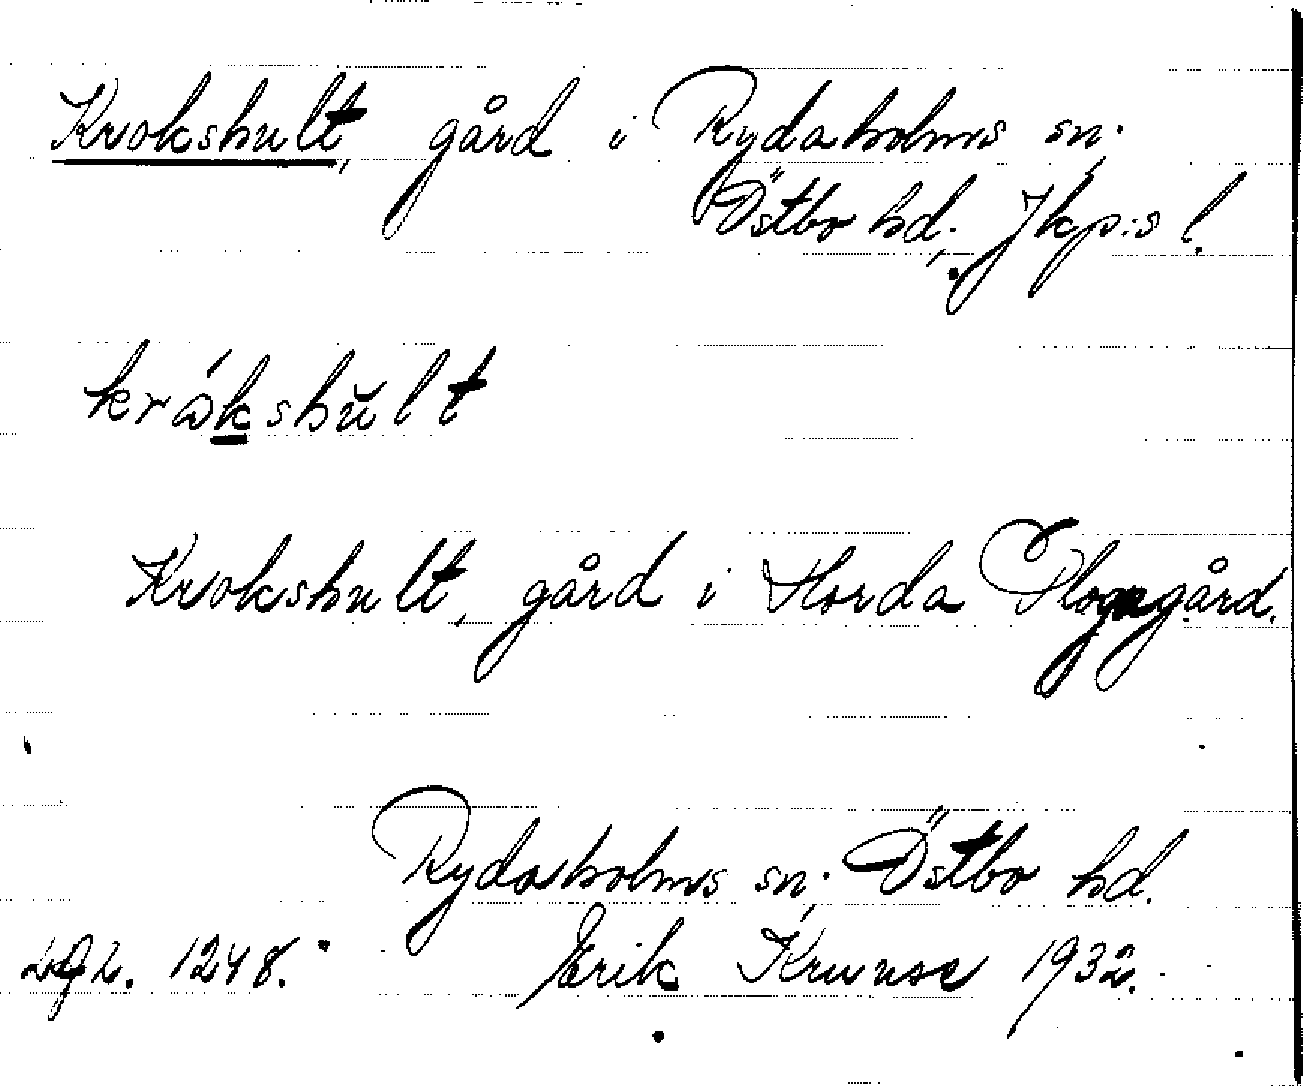 Krokshult, gård i Rydaholms sn;
Östbo hd; Jkp:s l.
kråkshŭlt
Krokshult, gård i Horda Plogagård.
Rydaholms sn; Östbo hd.
1248. Erik Kruuse 1932.